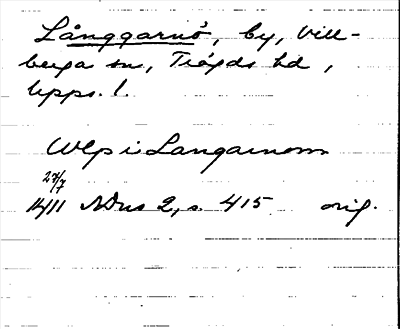 Långgarnö, by, Vill-
berga sn, Trögds hd,
Upps. l.
Ulp i Langarnom
27/7
1411 SDns 2, s. 415 orig.